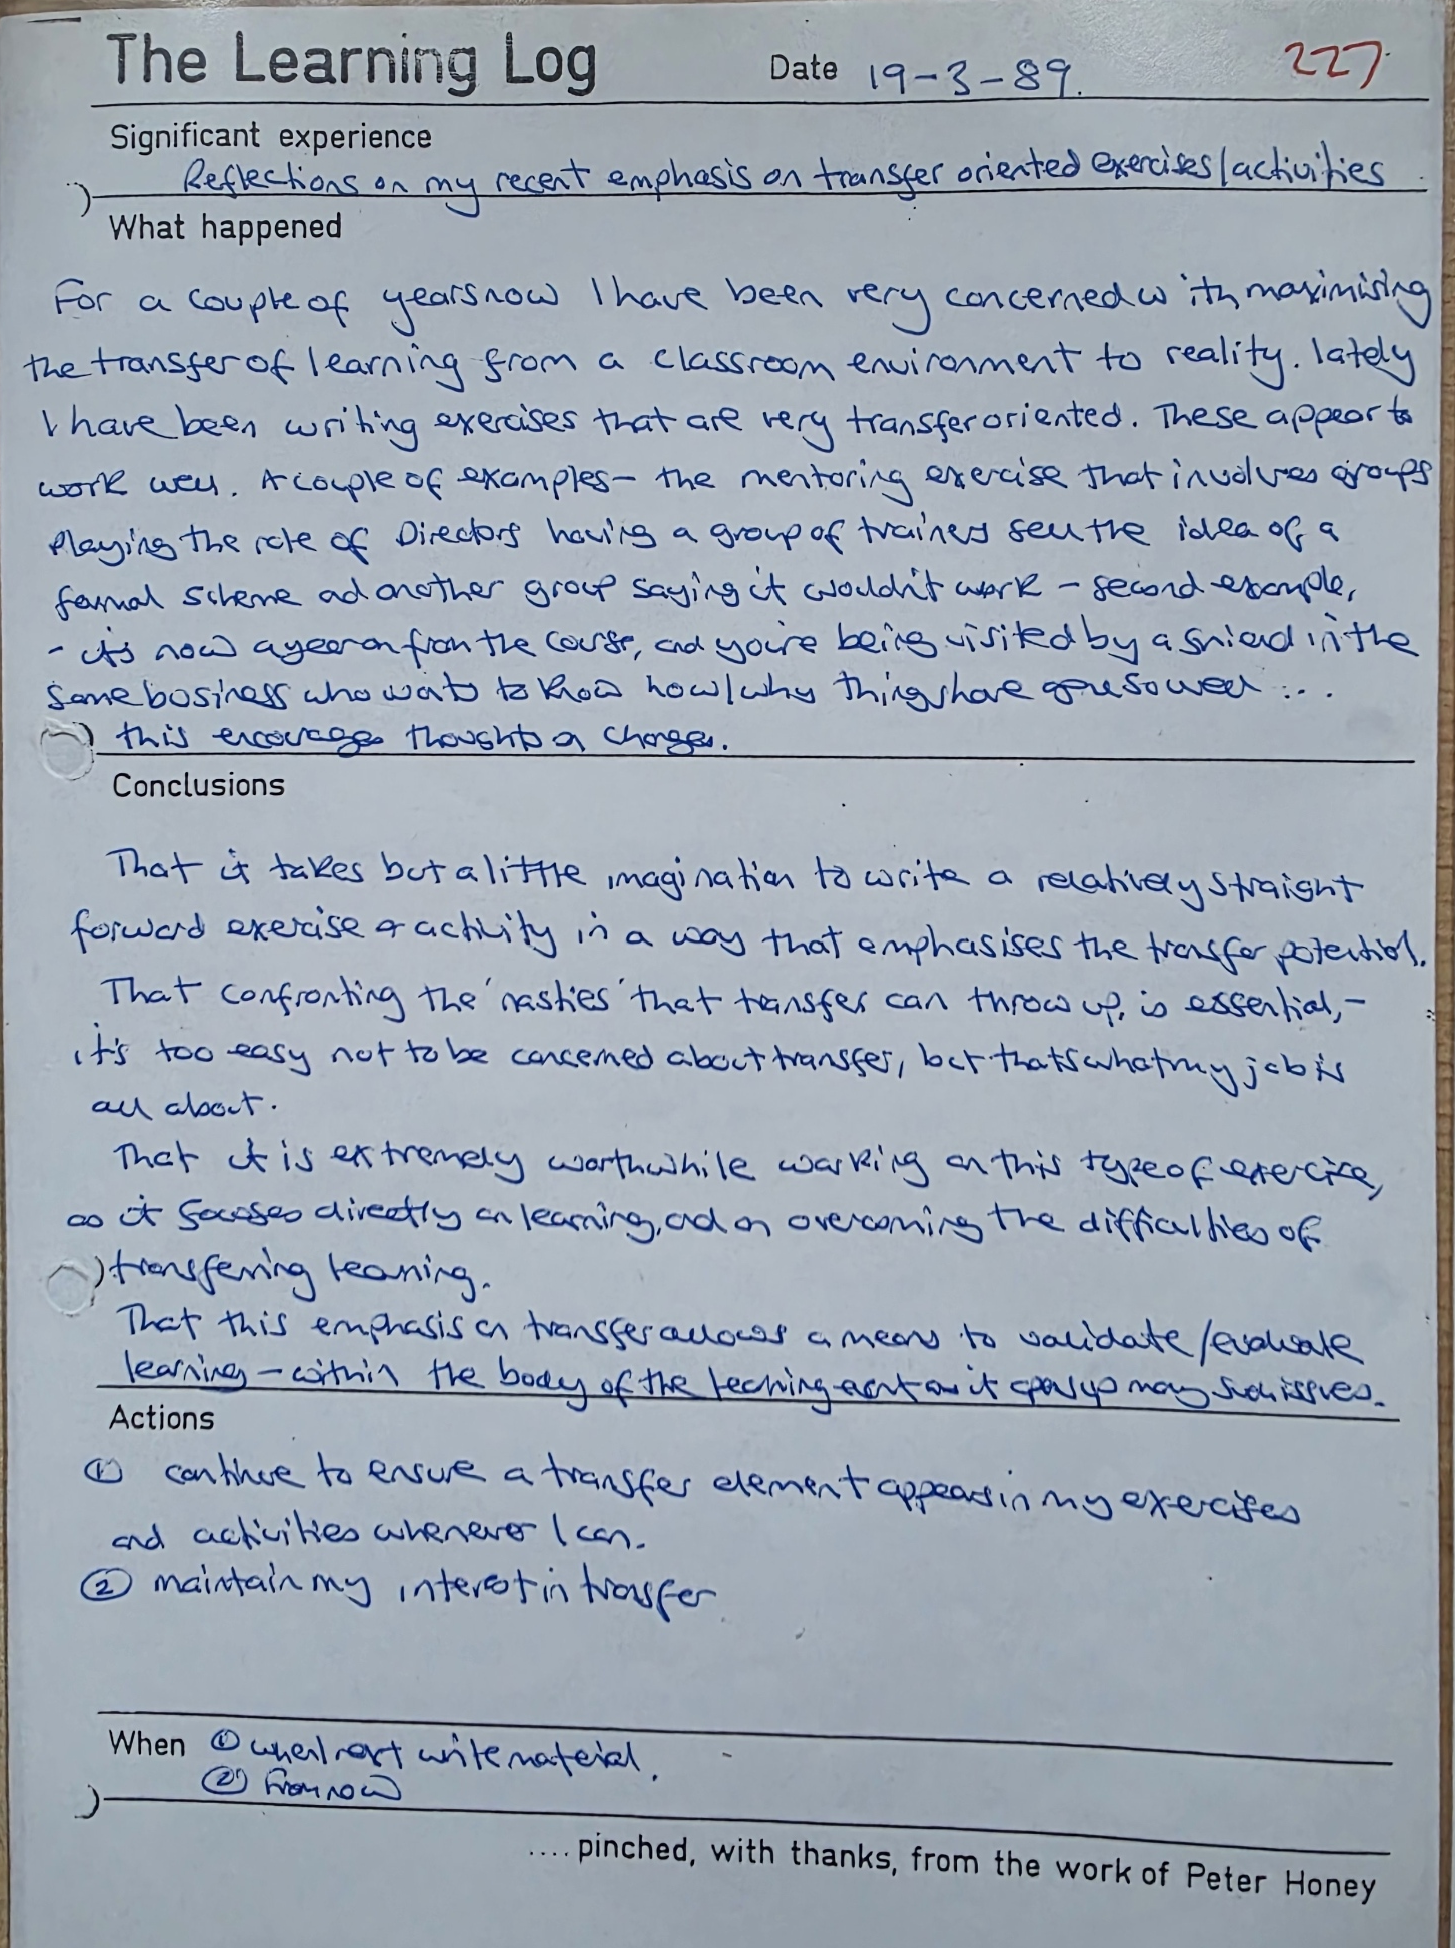 The Learning Log Date 19-3-89. 227
Significant experience
Reflections on my recent emphasis on transfer oriented exercises/activities
What happened
For a couple of years now I have been very concerned with maximising
the transfer of learning from a classroom environment to reality. lately
I have been writing exercises that are very transfer oriented. These appear to
work well. A couple of examples - the mentoring exercise that involves groups
playing the role of Directors having a group of trainers sell the idea of a
formal scheme and another group saying it wouldn't work - second example,
- it's now a year on from the course, and you're being visited by a friend in the
same business who wants to know how/why things have gone so well ...
this encourages thoughts on changes.
Conclusions
That it takes but a little imagination to write a relatively straight
forward exercise or activity in a way that emphasises the transfer potential.
That confronting the 'nasties' that transfer can throw up, is essential, -
it's too easy not to be concerned about transfer, but thats what my job is
all about.
That it is extremely worthwhile working on this type of exercise,
as it focuses directly on learning, and on overcoming the difficulties of
transferring learning.
That this emphasis on transfer allows a means to validate/evaluate
learning - within the body of the teaching event as it opens up many such issues.
Actions
① continue to ensure a transfer element appears in my exercises
and activities whenever I can.
② maintain my interest in transfer
When ① when I next write material.
② From now
.... pinched, with thanks, from the work of Peter Honey